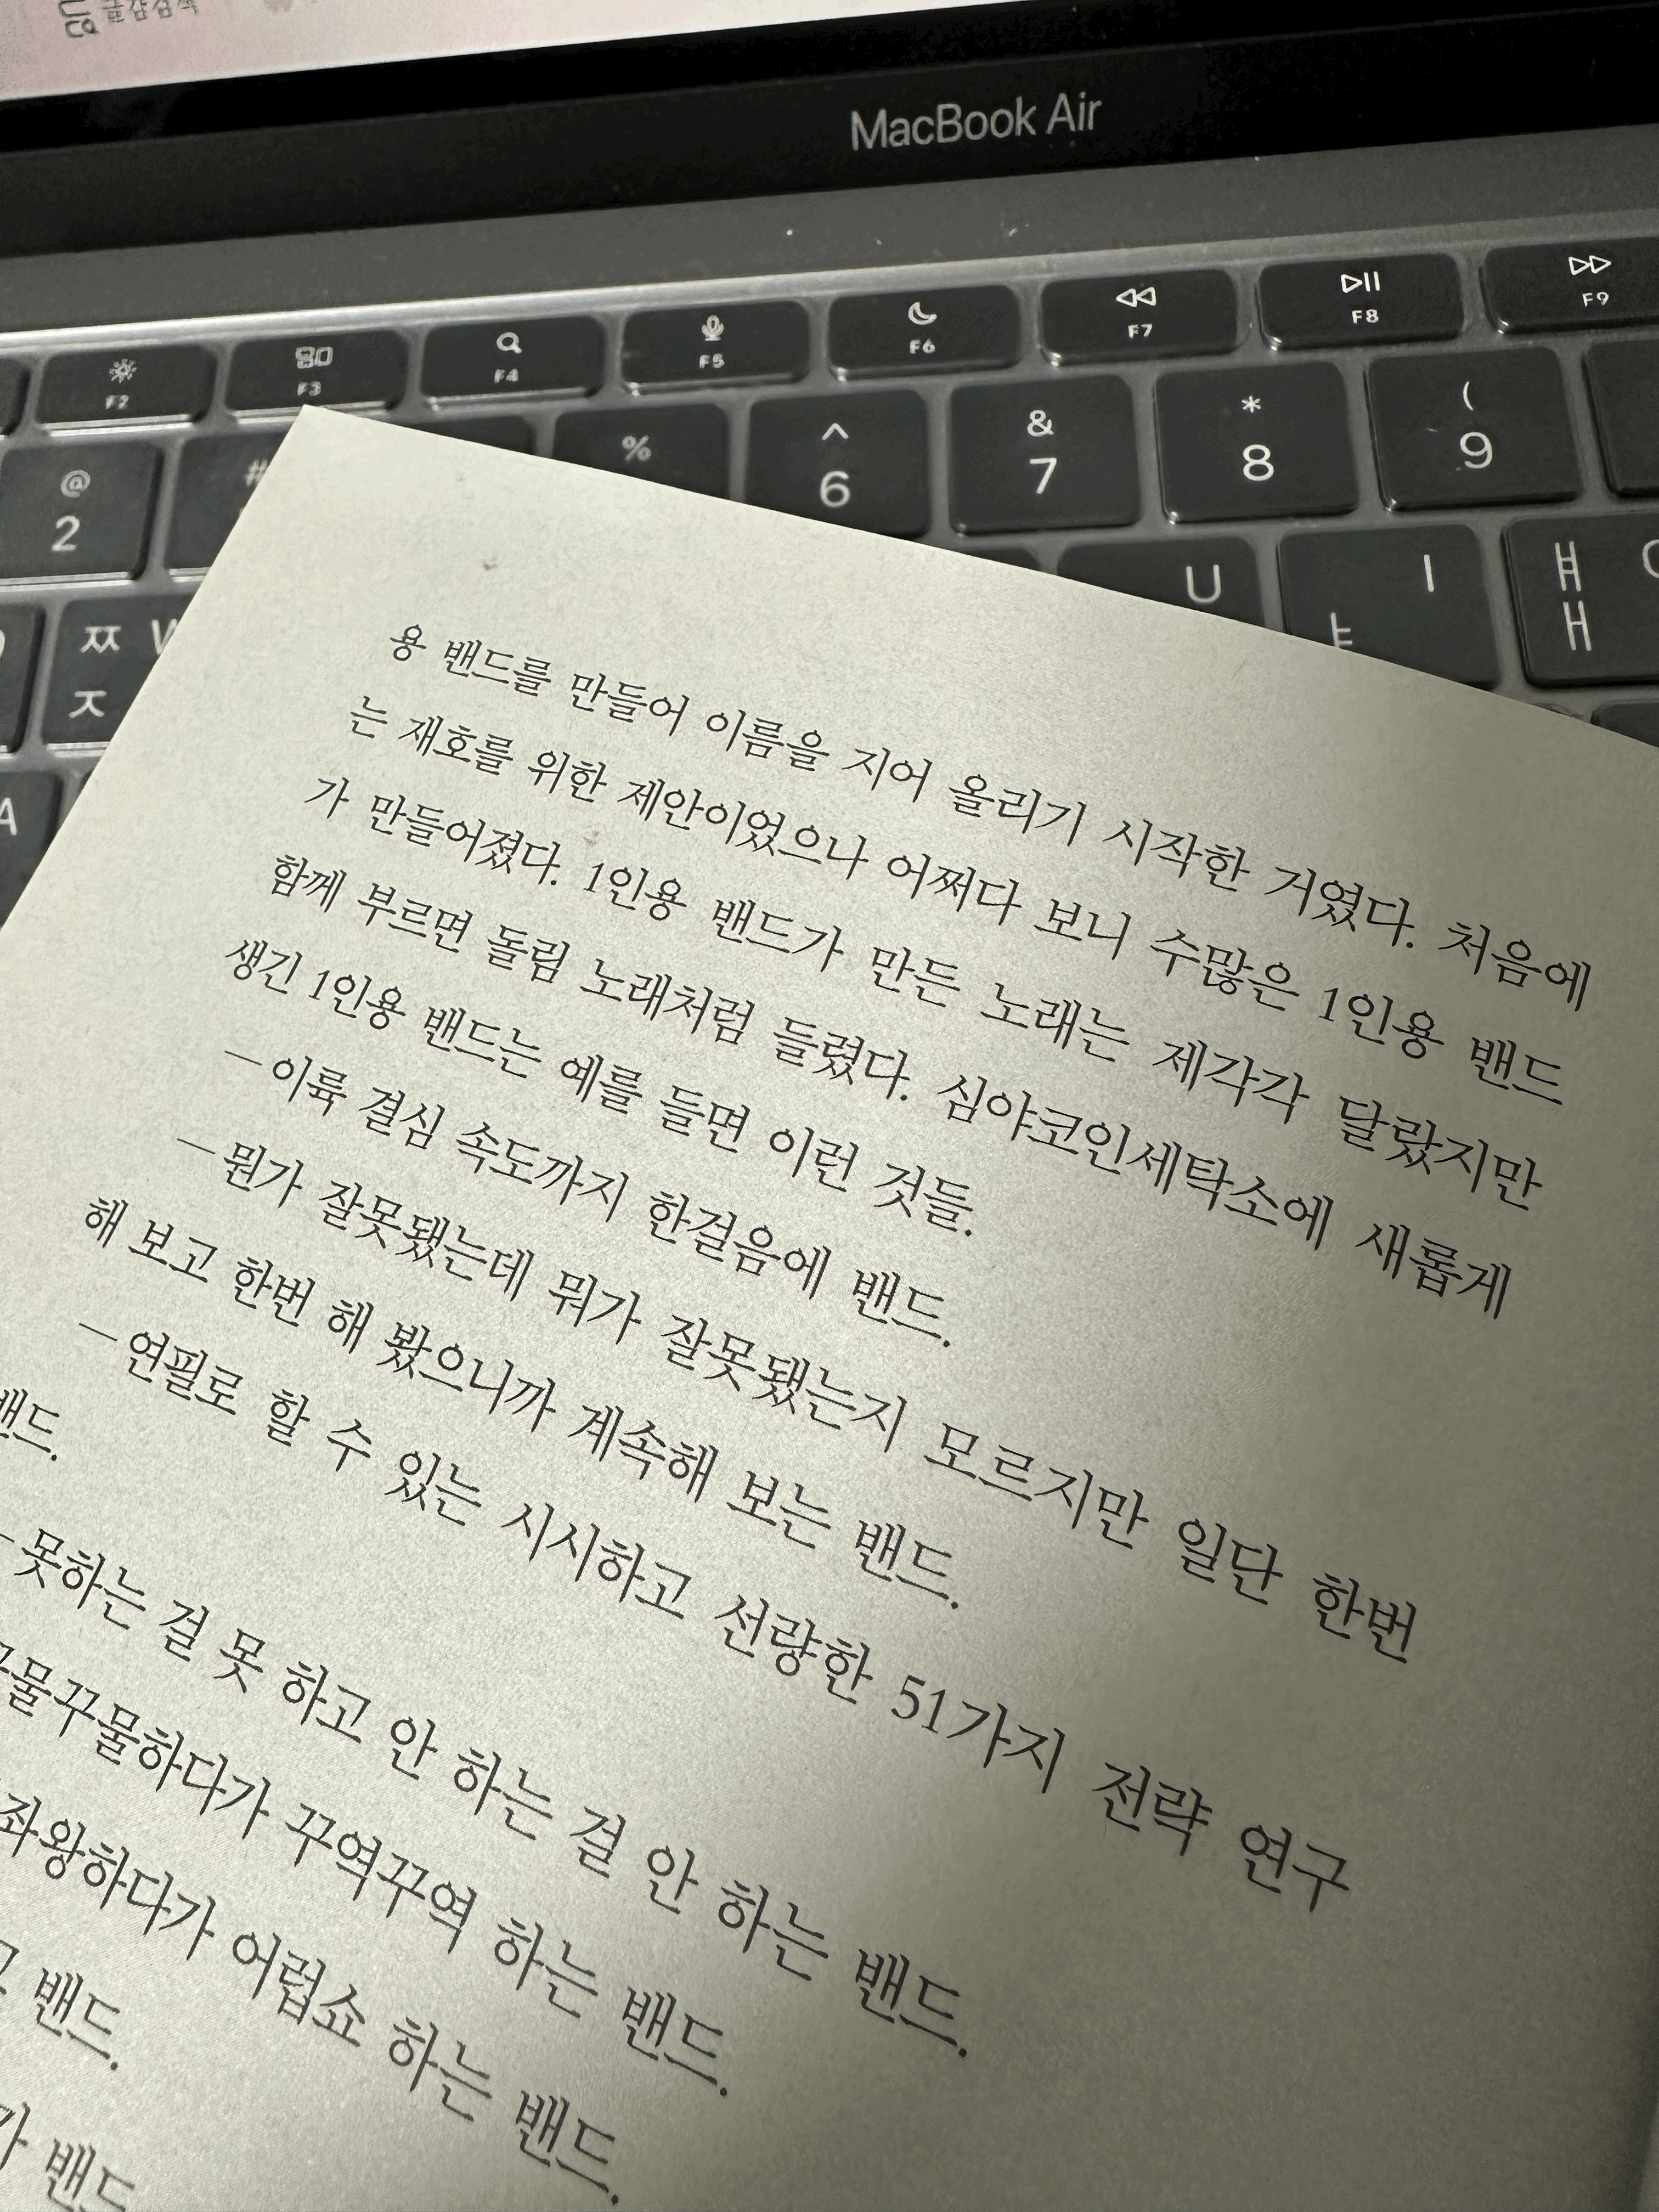 글감검색
MacBook Air
F2
F3
F4
F5
F6
F7
F8
F9
@
2
#
%
^
6
&
7
*
8
(
9
ㅉ W
ㅈ
U
I
ㅑ
ㅒ
ㅐ
A
용 밴드를 만들어 이름을 지어 올리기 시작한 거였다. 처음에
는 재호를 위한 제안이었으나 어쩌다 보니 수많은 1인용 밴드
가 만들어졌다. 1인용 밴드가 만든 노래는 제각각 달랐지만
함께 부르면 돌림 노래처럼 들렸다. 심야코인세탁소에 새롭게
생긴 1인용 밴드는 예를 들면 이런 것들.
—이륙 결심 속도까지 한걸음에 밴드.
—뭔가 잘못됐는데 뭐가 잘못됐는지 모르지만 일단 한번
해 보고 한번 해 봤으니까 계속해 보는 밴드.
—연필로 할 수 있는 시시하고 선량한 51가지 전략 연구
밴드.
—못하는 걸 못 하고 안 하는 걸 안 하는 밴드.
꾸물꾸물하다가 꾸역꾸역 하는 밴드.
좌왕하다가 어렵쇼 하는 밴드.
밴드.
가 밴드